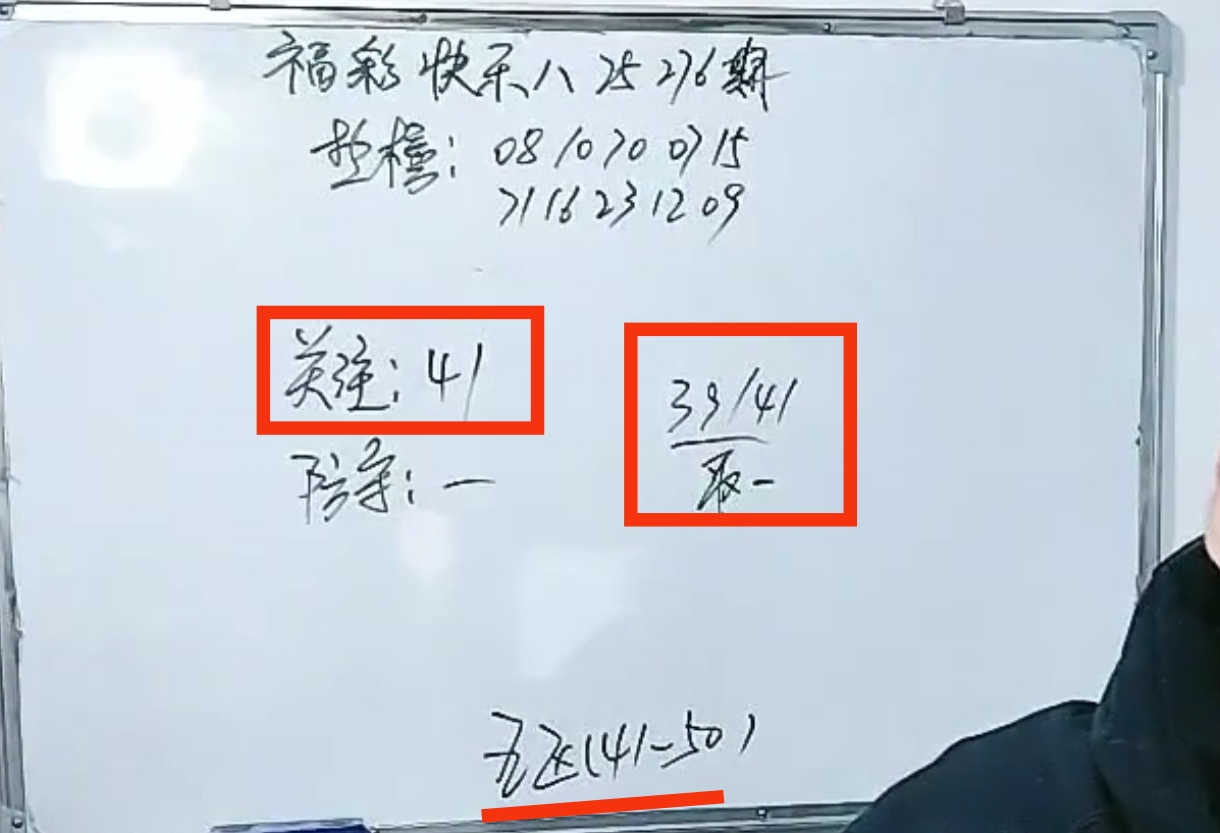 福彩快乐八25276期
坐标：08 10 20 07 15
21 16 23 12 09
关注：41
39/41
取一
防守：一
五区(41-50)